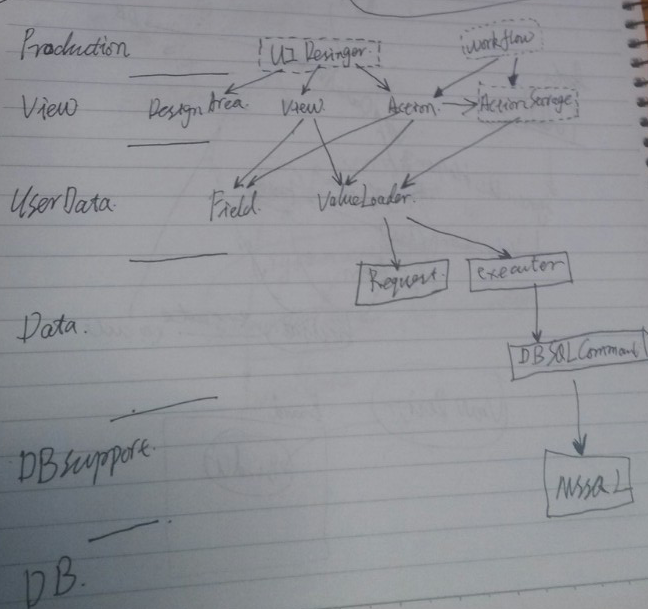 Production
UI Desinger.
workflow
View
Design Area.
View.
Action.
Action Sorage.
UserData.
Field.
ValueLoader.
Request.
executor
Data.
DBSQLCommant
DBsupport.
MSSQL
DB.